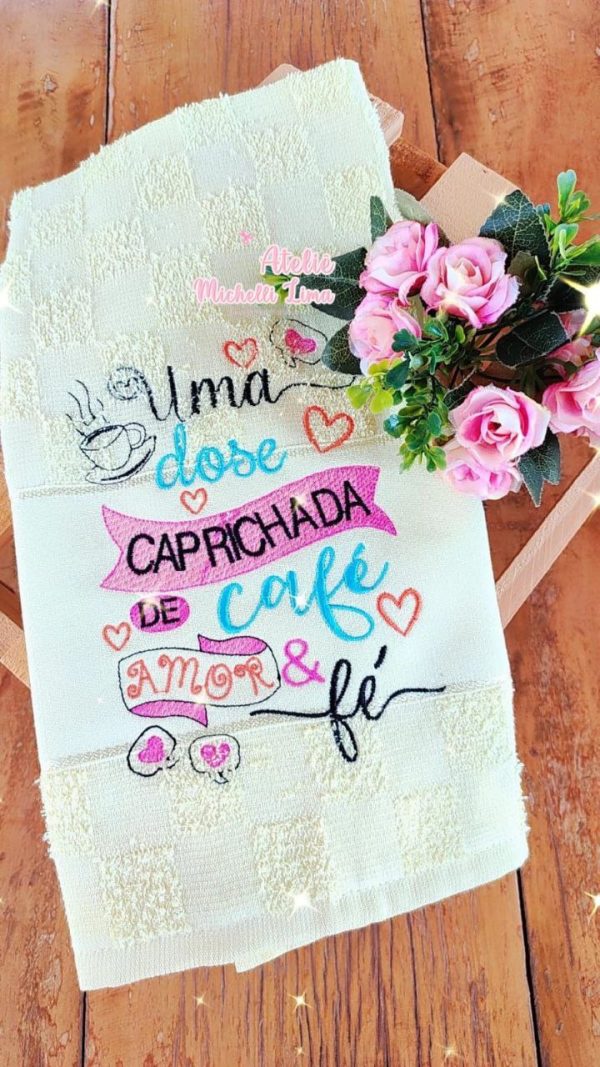 Ateliê
Michelli Lima
Uma
dose
CAPRICHADA
DE café
AMOR &
fé